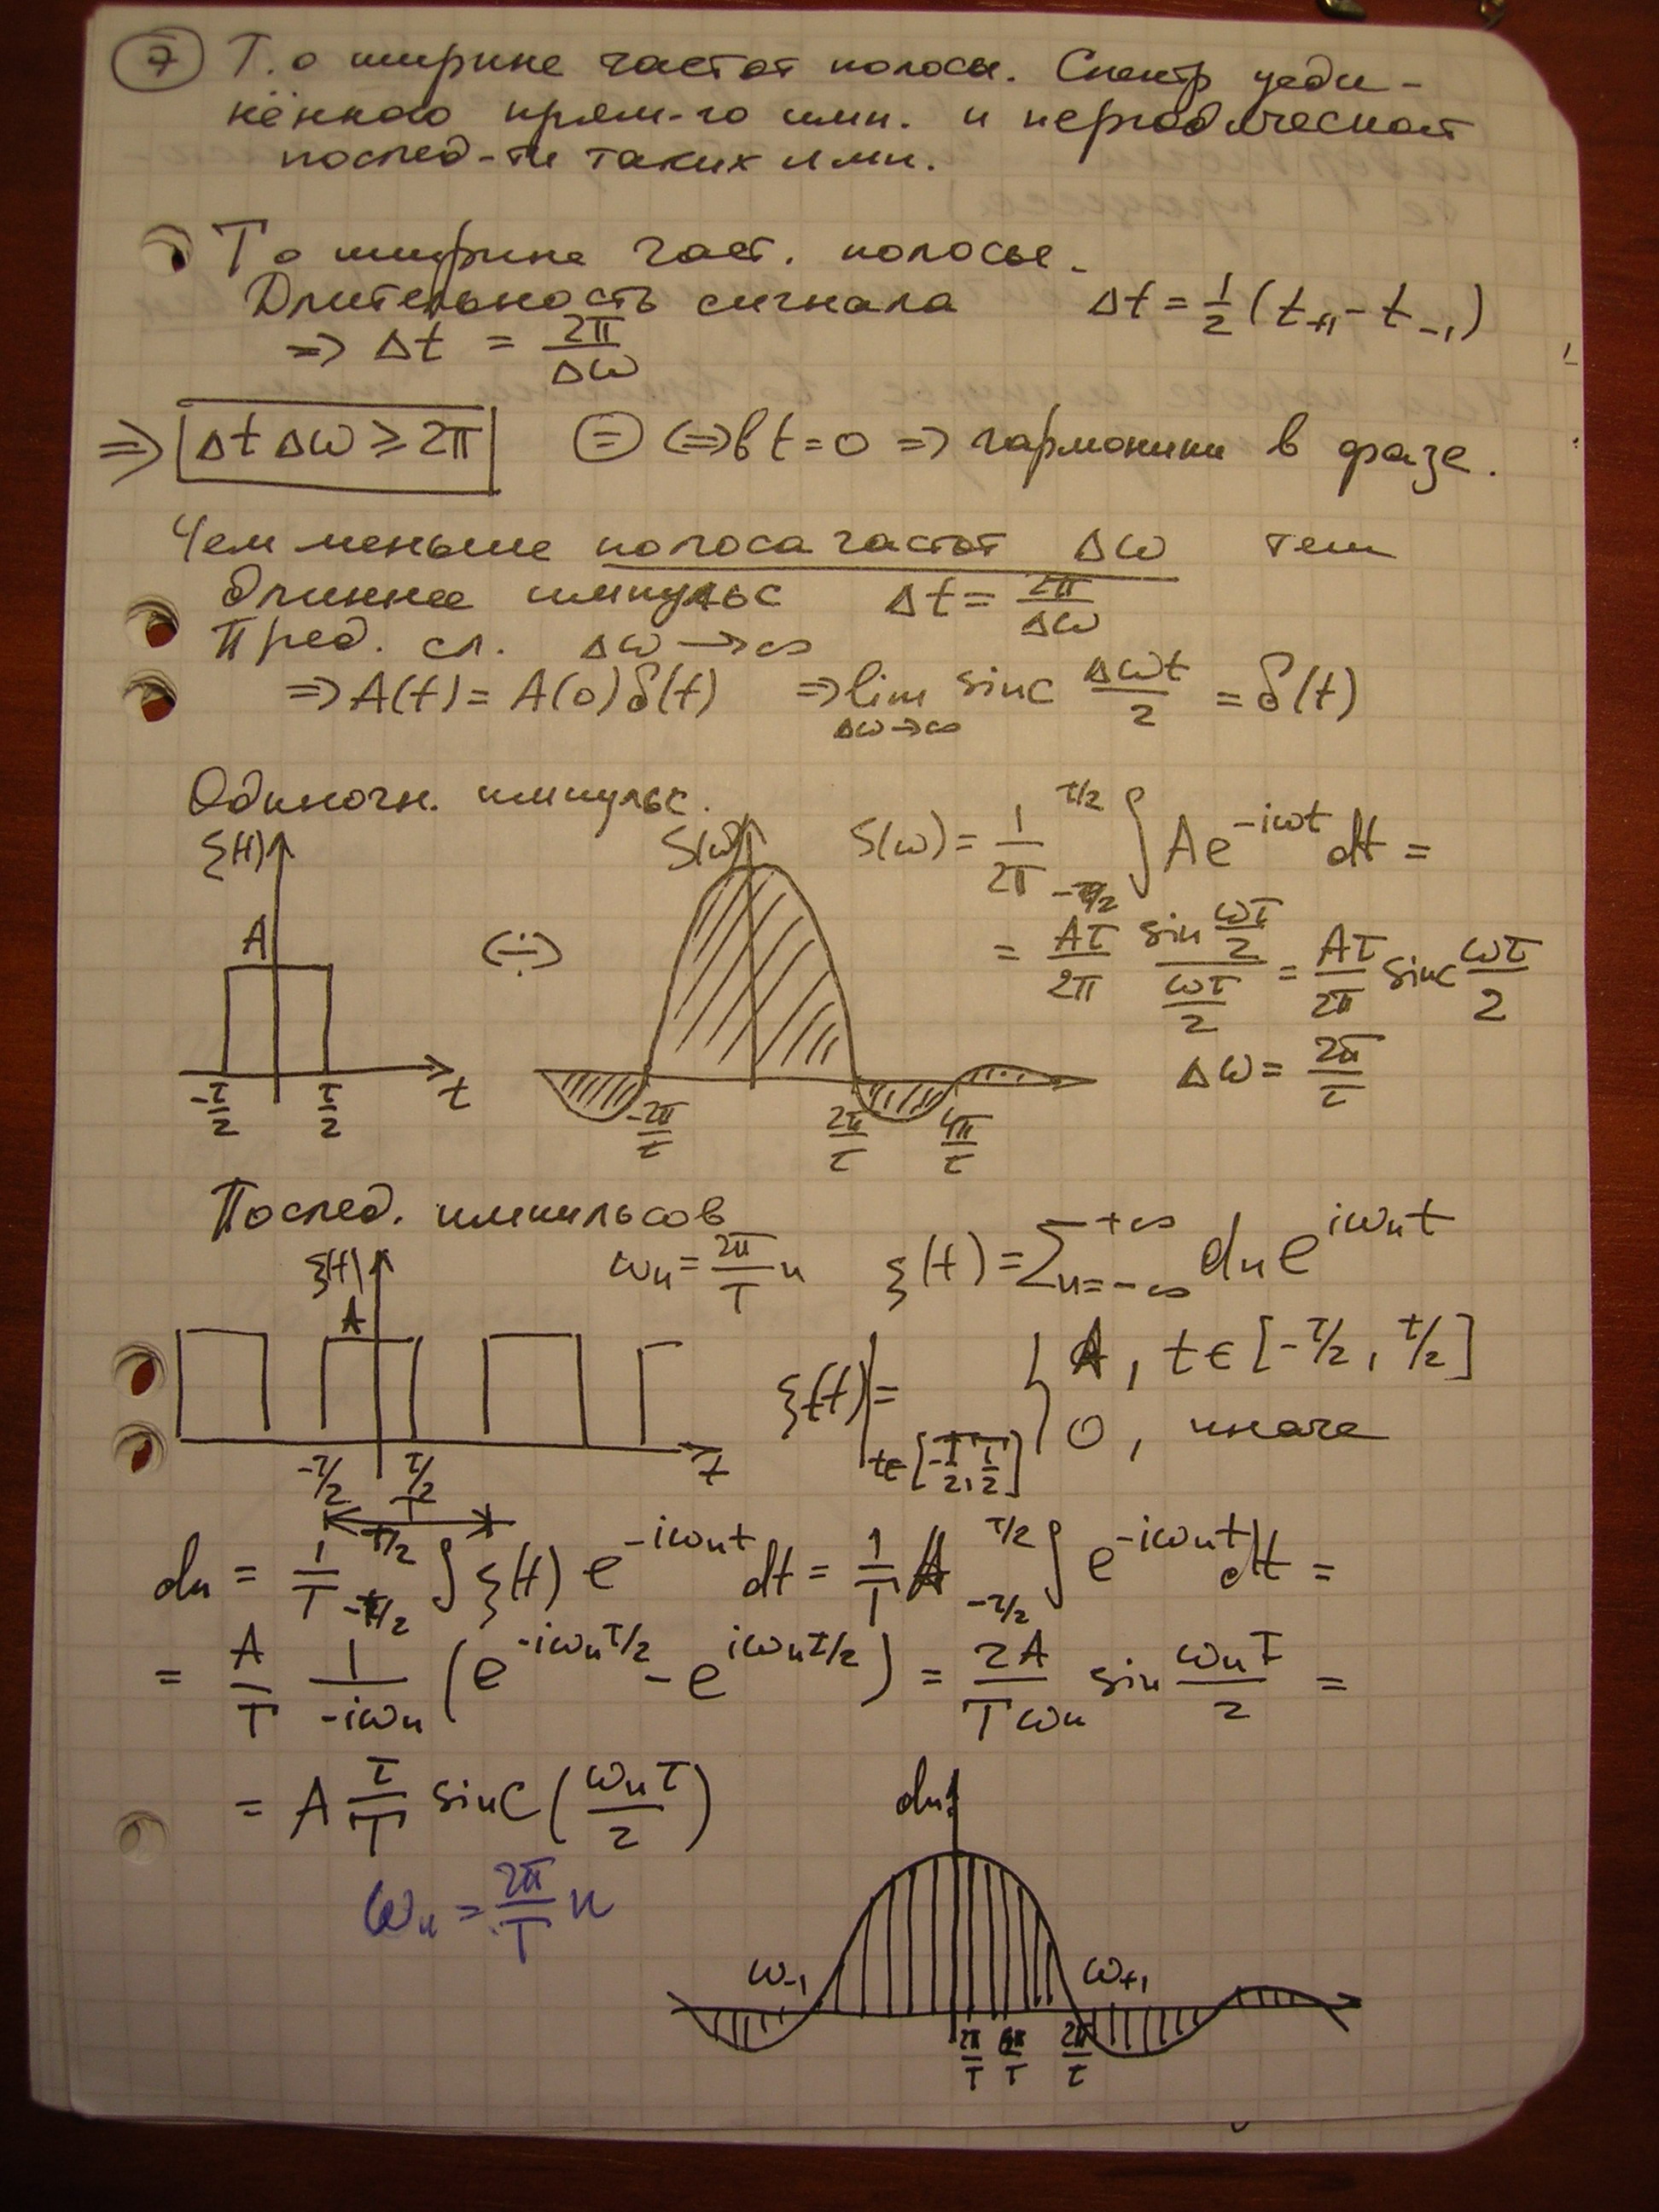 7 Т. о ширине частот полосы. Спектр уеди-
нённого прям-го имп. и периодической
послед-ти таких имп.
Т о ширине част. полосы.
Длительность сигнала Δt = 1/2 (t₊₁ - t₋₁)
=> Δt = 2π/Δω
=> Δt Δω ⩾ 2π (=) <=> в t = 0 => гармоники в фазе.
Чем меньше полоса частот Δω тем
длиннее импульс Δt = 2π/Δω
Пред. сл. Δω → ∞
=> A(t) = A(0) δ(t) => lim Δω→∞ sinc Δωt/2 = δ(t)
Одиночн. импульс.
ξ(t) A -τ/2 τ/2 t
(÷)
S(ω) -2π/τ 2π/τ 4π/τ
S(ω) = 1/2π -τ/2 ∫ τ/2 A e^{-iωt} dt =
= Aτ/2π (sin ωτ/2)/(ωτ/2) = Aτ/2π sinc ωτ/2
Δω = 2π/τ
Послед. импульсов
ωn = 2π/T n ξ(t) = Σ n=-∞ +∞ dn e^{iωnt}
ξ(t) A -τ/2 τ/2 t T
ξ(t)| t∈[-T/2, T/2] = { A, t ∈ [-τ/2, τ/2]
0, иначе
dn = 1/T -T/2 ∫ T/2 ξ(t) e^{-iωnt} dt = 1/T A -τ/2 ∫ τ/2 e^{-iωnt} dt =
= A/T 1/-iωn (e^{-iωnτ/2} - e^{iωnτ/2}) = 2A/Tωn sin ωnτ/2 =
= A τ/T sinc (ωnτ/2)
ωn = 2π/T n
dn ω₋₁ ω₊₁
2π/T 4π/T 2π/τ